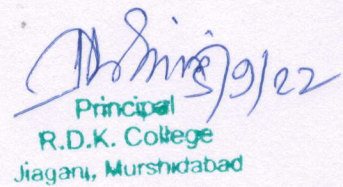 5/9/22
Principal
R.D.K. College
Jiaganj, Murshidabad